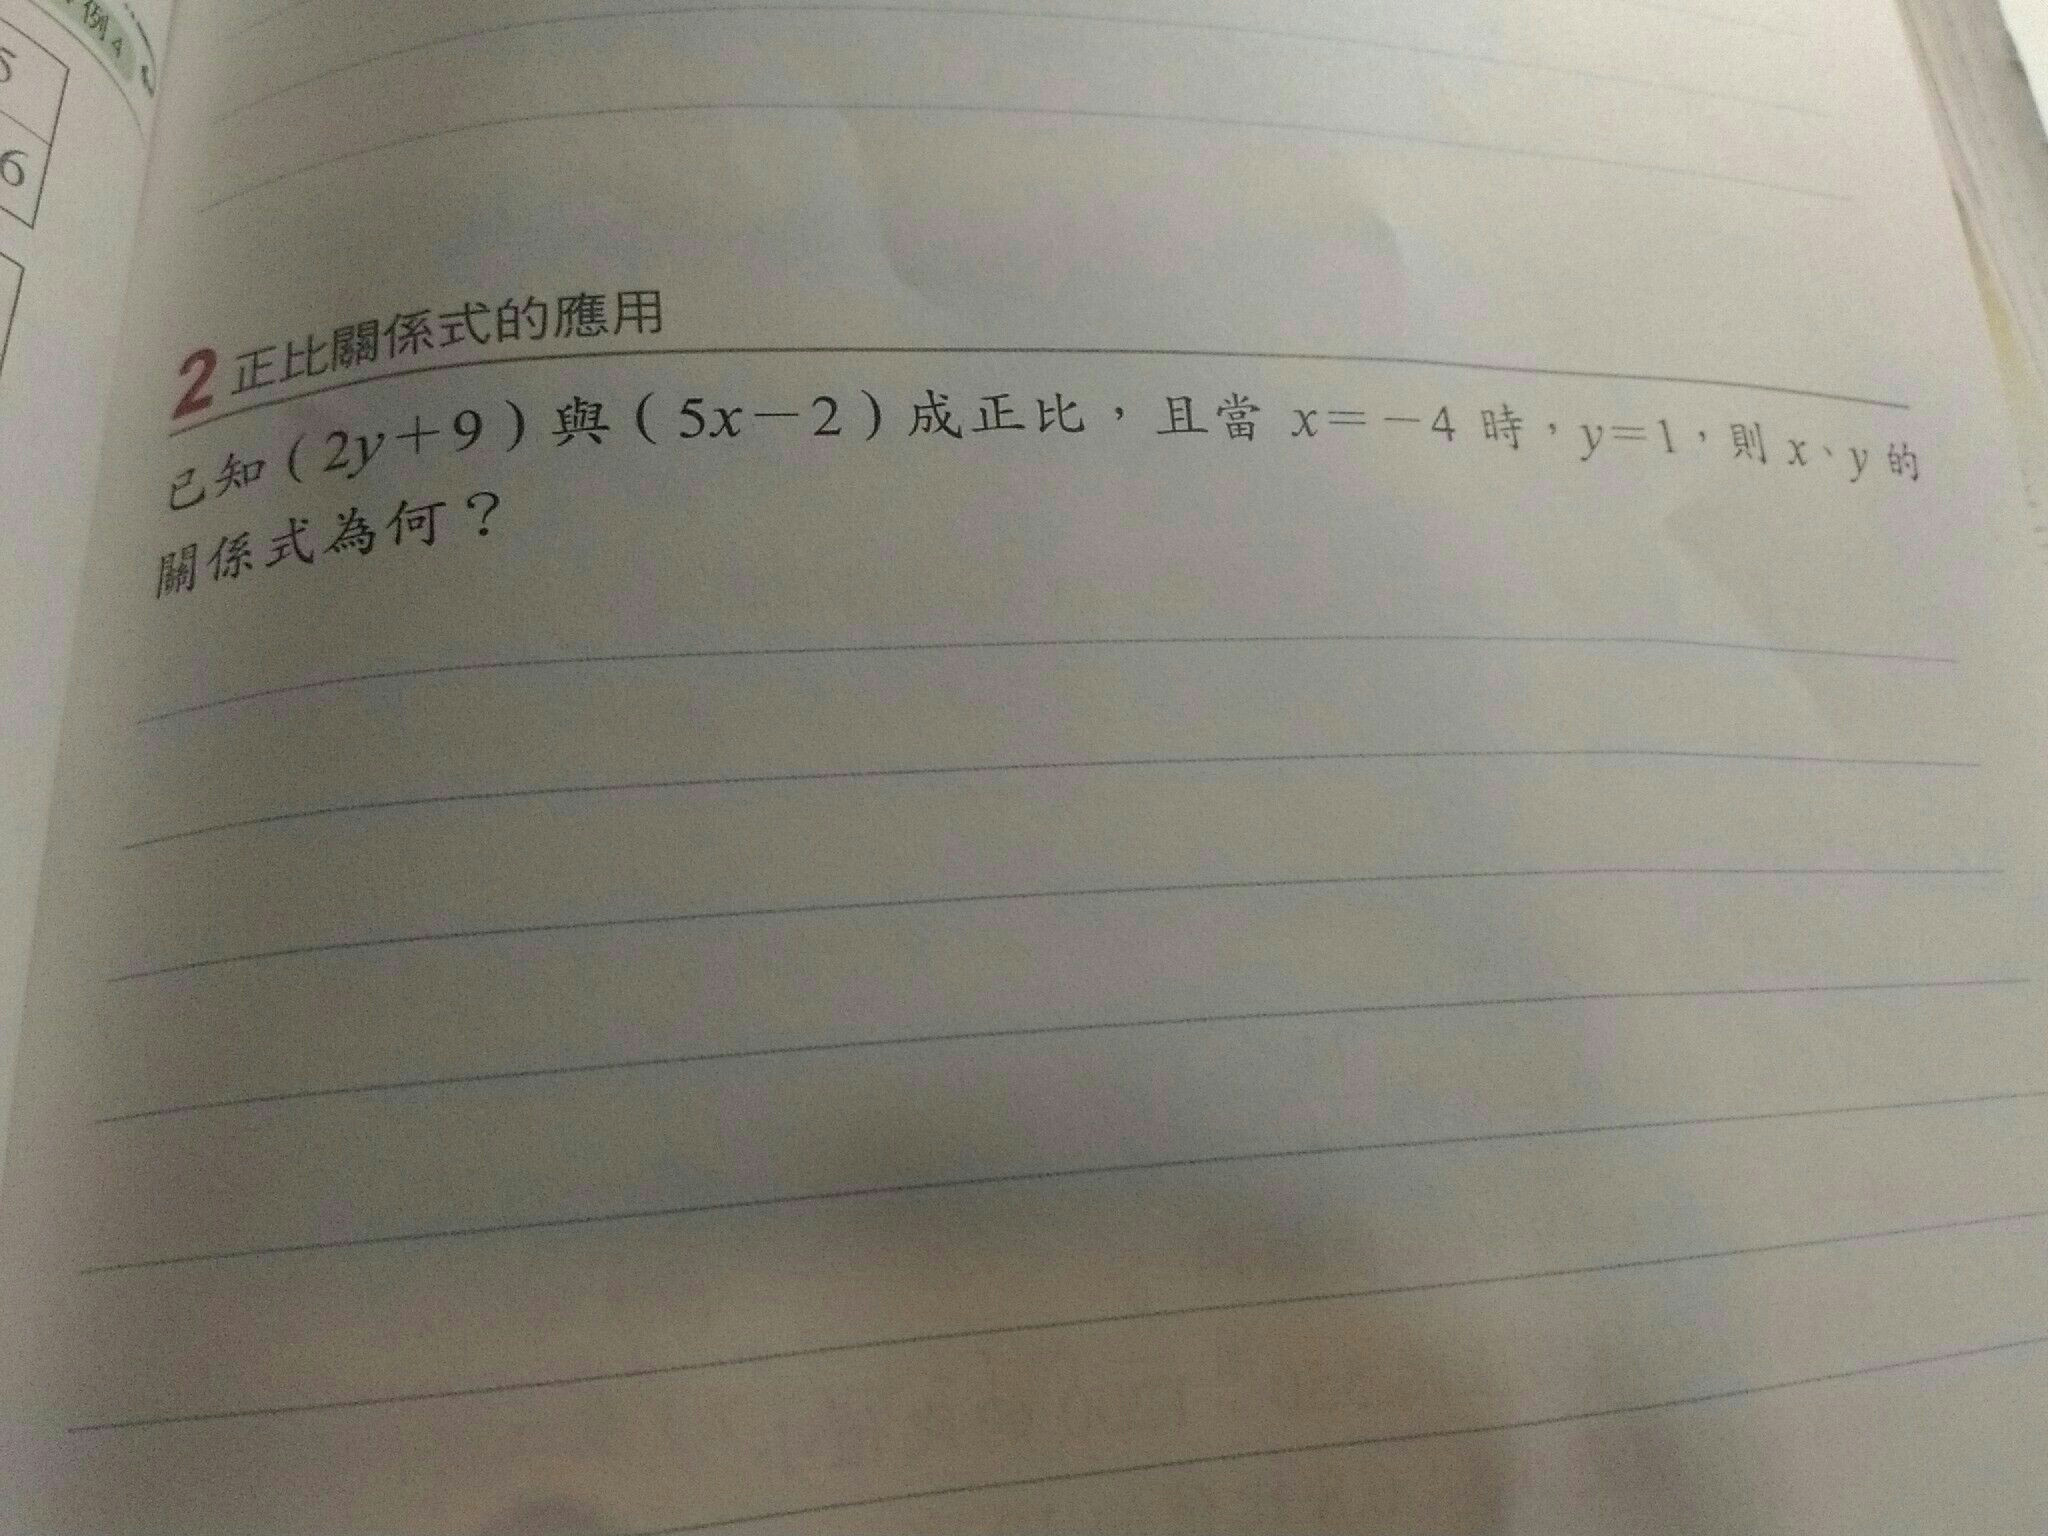 例 4
5
6
2 正比關係式的應用
已知(2y+9)與(5x-2)成正比,且當 x=-4 時,y=1,則 x、y 的
關係式為何?